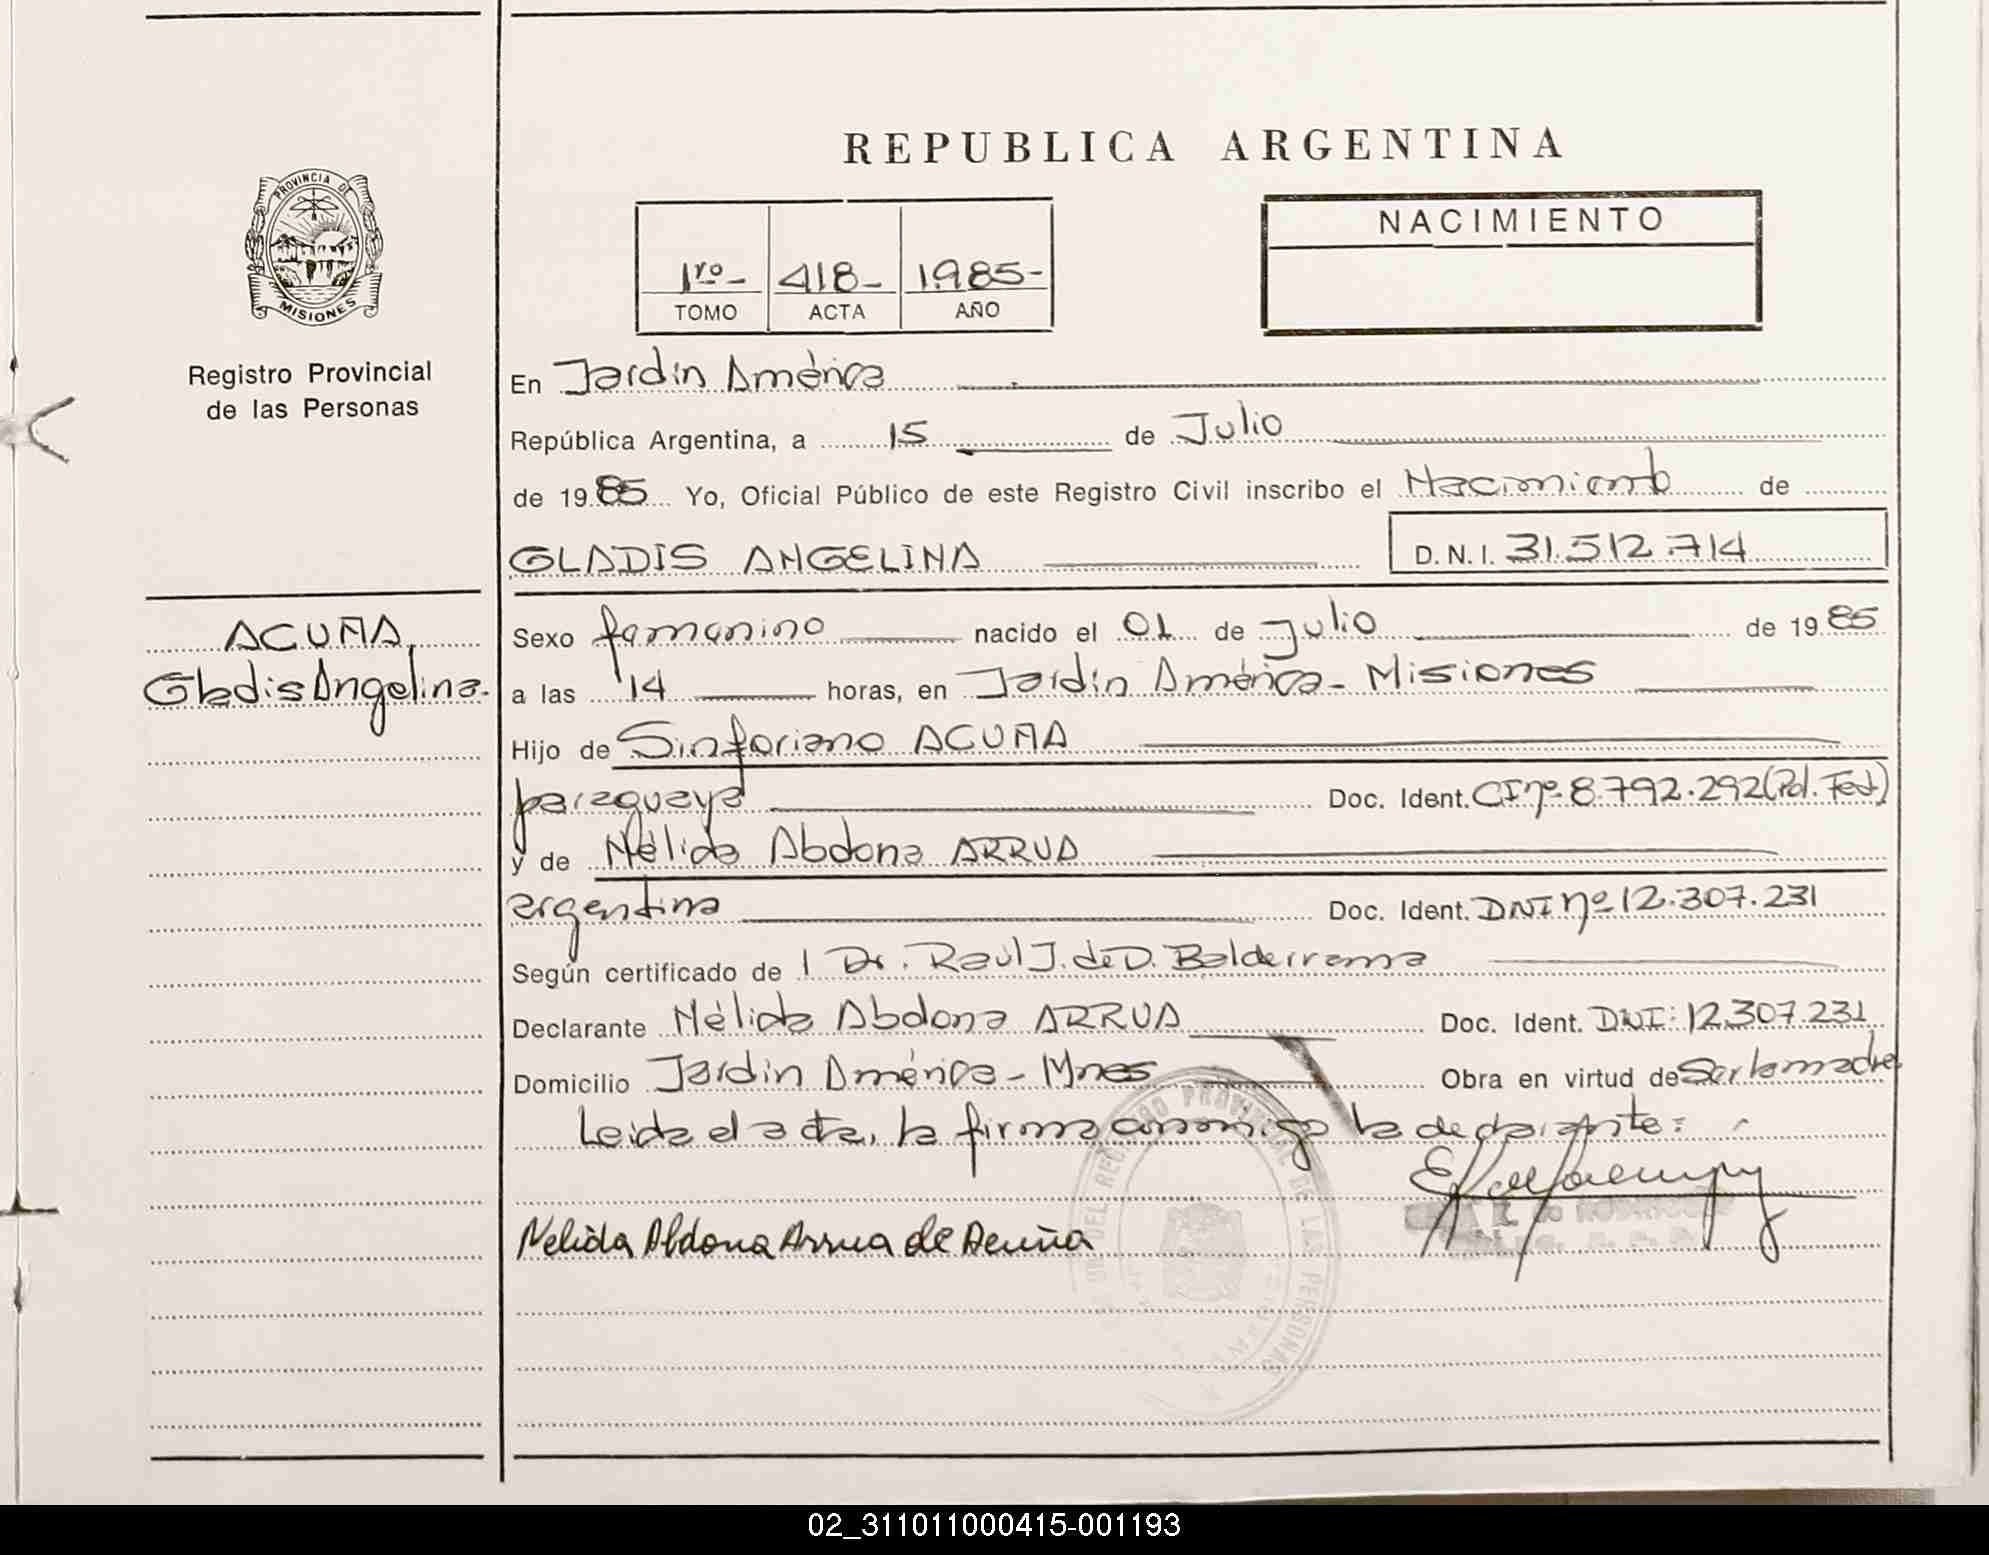 REPUBLICA ARGENTINA
PROVINCIA DE MISIONES
Registro Provincial
de las Personas
1ro- 418- 1985-
TOMO ACTA AÑO
NACIMIENTO
En Jardín América
República Argentina, a 15 de Julio
de 1985 Yo, Oficial Público de este Registro Civil inscribo el Nacimiento de
GLADIS ANGELINA D.N.I. 31.512.714
ACUÑA,
Gladis Angelina.
Sexo femenino nacido el 01 de julio de 1985
a las 14 horas, en Jardín América - Misiones
Hijo de Sinforiano ACUÑA
paraguaya Doc. Ident. CI nº 8.792.292 (Pol. Fed)
y de Nélida Abdona ARRUA
argentina Doc. Ident. DNI nº 12.307.231
Según certificado de l Dr. Raúl J. de D. Balderrama
Declarante Nélida Abdona ARRUA Doc. Ident. DNI: 12.307.231
Domicilio Jardín América - Mnes Obra en virtud de Ser la madre
Leída el acta, la firma conmigo la declarante:
Nelida Abdona Arrua de Acuña
REGISTRO PROVINCIAL DE LAS PERSONAS
02_311011000415-001193